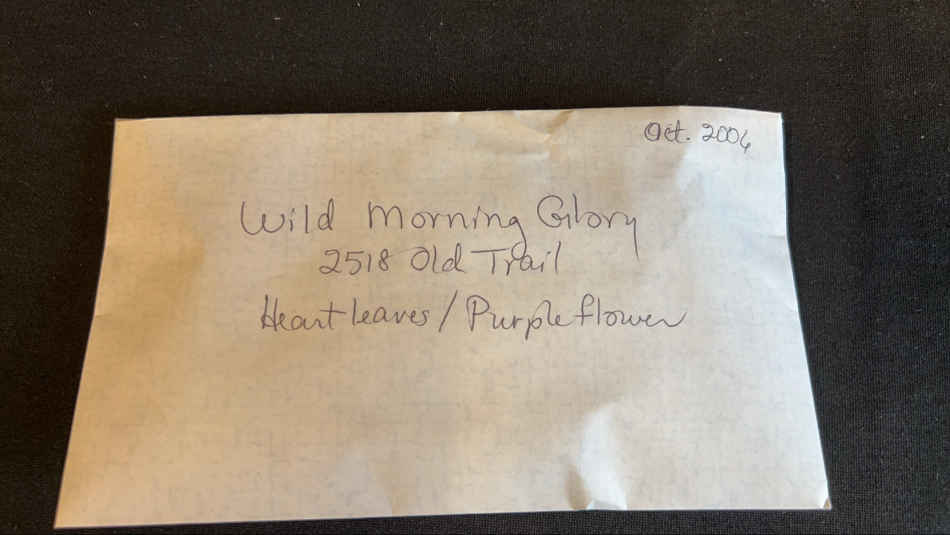 Oct. 2004
Wild Morning Glory
2518 Old Trail
Heart leaves / Purple flower